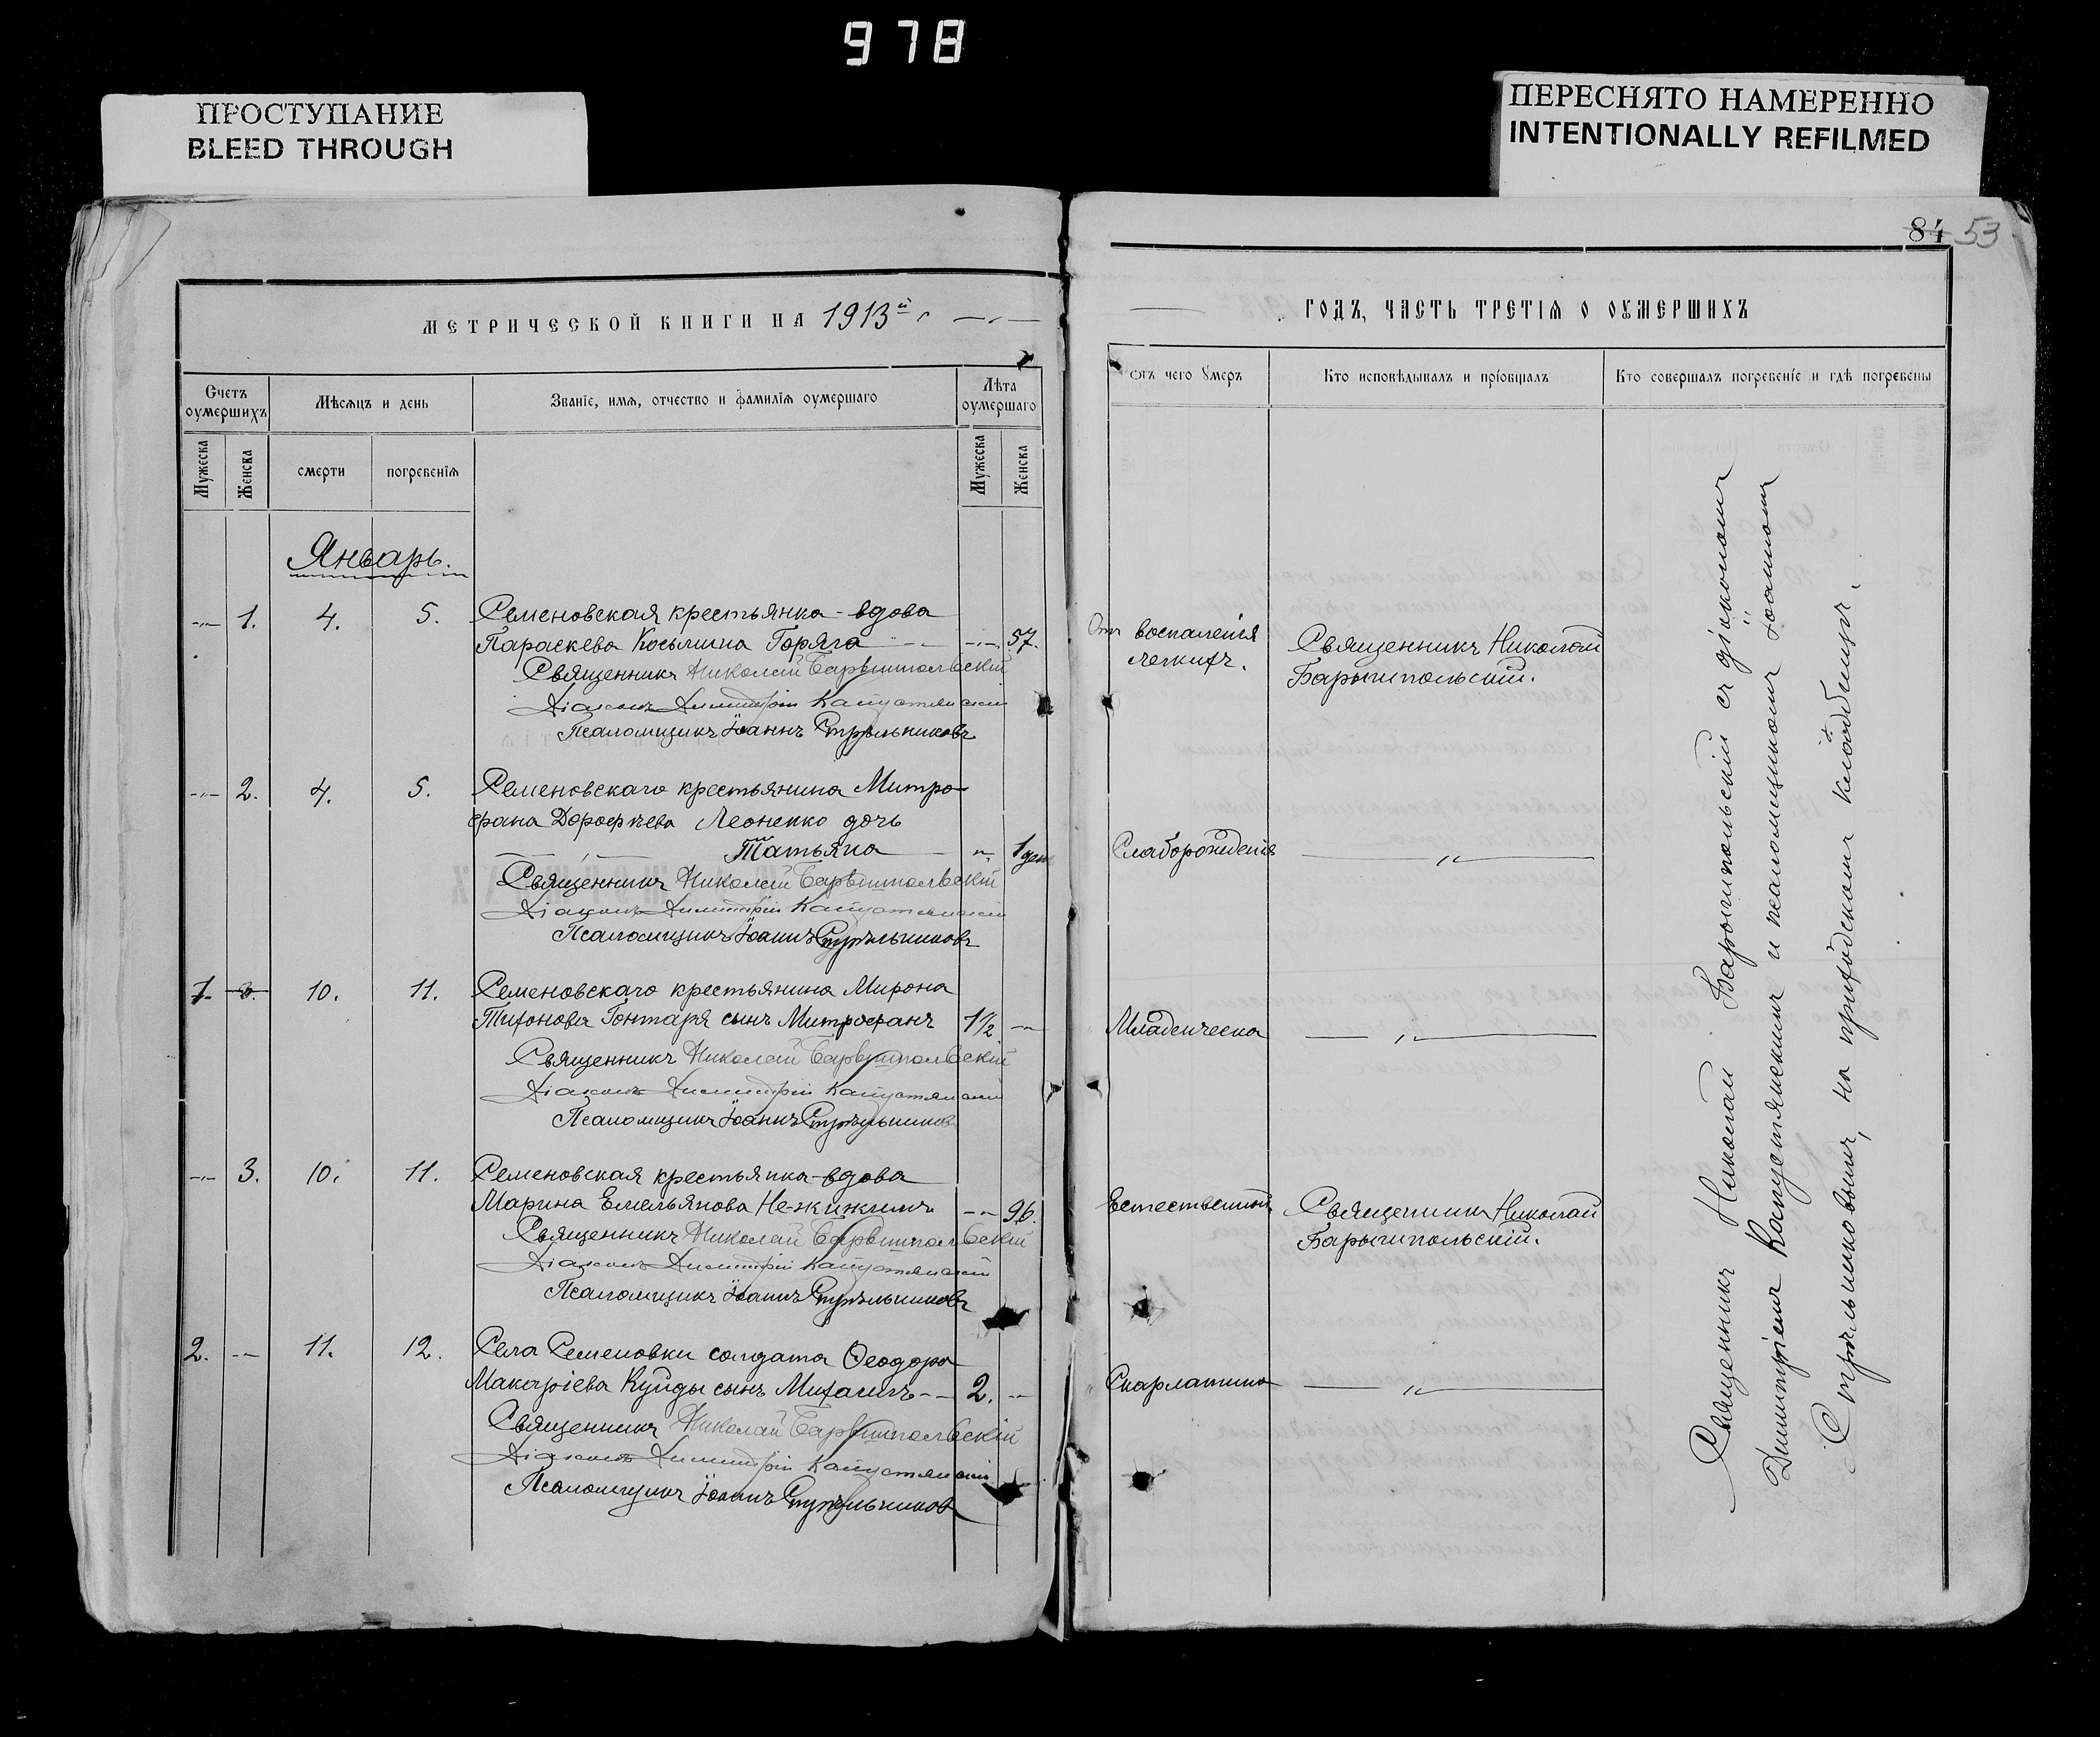 978
ПРОСТУПАНИЕ
BLEED THROUGH
ПЕРЕСНЯТО НАМЕРЕННО
INTENTIONALLY REFILMED
84 53
МЕТРИЧЕСКОЙ КНИГИ НА 1913й
Счетъ оумершихъ
Мѣсяцъ и день
Званіе, имя, отчество и фамилія оумершаго
Лѣта оумершаго
Мужеска
Женска
смерти
погребенія
Мужеска
Женска
Январь.
1. 4. 5. Семеновская крестьянка-вдова
Параскева Косьмина Горяга 57.
Священникъ Николай Барышпольскій
Діаконъ Димитрій Капустянскій
Псаломщикъ Іоаннъ Стрѣльниковъ
2. 4. 5. Семеновскаго крестьянина Митро-
фана Дорофѣева Леоненко дочь
Татьяна 1 день
Священникъ Николай Барышпольскій
Діаконъ Димитрій Капустянскій
Псаломщикъ Іоаннъ Стрѣльниковъ
1. 3. 10. 11. Семеновскаго крестьянина Мирона
Тихонова Гонтаря сынъ Митрофанъ 1½
Священникъ Николай Барышпольскій
Діаконъ Димитрій Капустянскій
Псаломщикъ Іоаннъ Стрѣльниковъ
3. 10. 11. Семеновская крестьянка-вдова
Марина Емельянова 96.
Священникъ Николай Барышпольскій
Діаконъ Димитрій Капустянскій
Псаломщикъ Іоаннъ Стрѣльниковъ
2. 11. 12. Села Семеновки солдата Ѳеодора
Макаріева Куйды сынъ Михаилъ 2.
Священникъ Николай Барышпольскій
Діаконъ Димитрій Капустянскій
Псаломщикъ Іоаннъ Стрѣльниковъ
ГОДЪ, ЧАСТЬ ТРЕТІЯ О ОУМЕРШИХЪ
Отъ чего умеръ
Кто исповѣдывалъ и пріобщалъ
Кто совершалъ погребеніе и гдѣ погребены
Отъ воспаленія
легкихъ.
Священникъ Николай
Барышпольскій.
Слаборожденія
Младенческа
Естественной
Священникъ Николай
Барышпольскій.
Скарлатина
Священникъ Николай Барышпольскій съ діакономъ
Димитріемъ Капустянскимъ и псаломщикомъ Іоанномъ
Стрѣльниковымъ, на приходскомъ кладбищѣ.